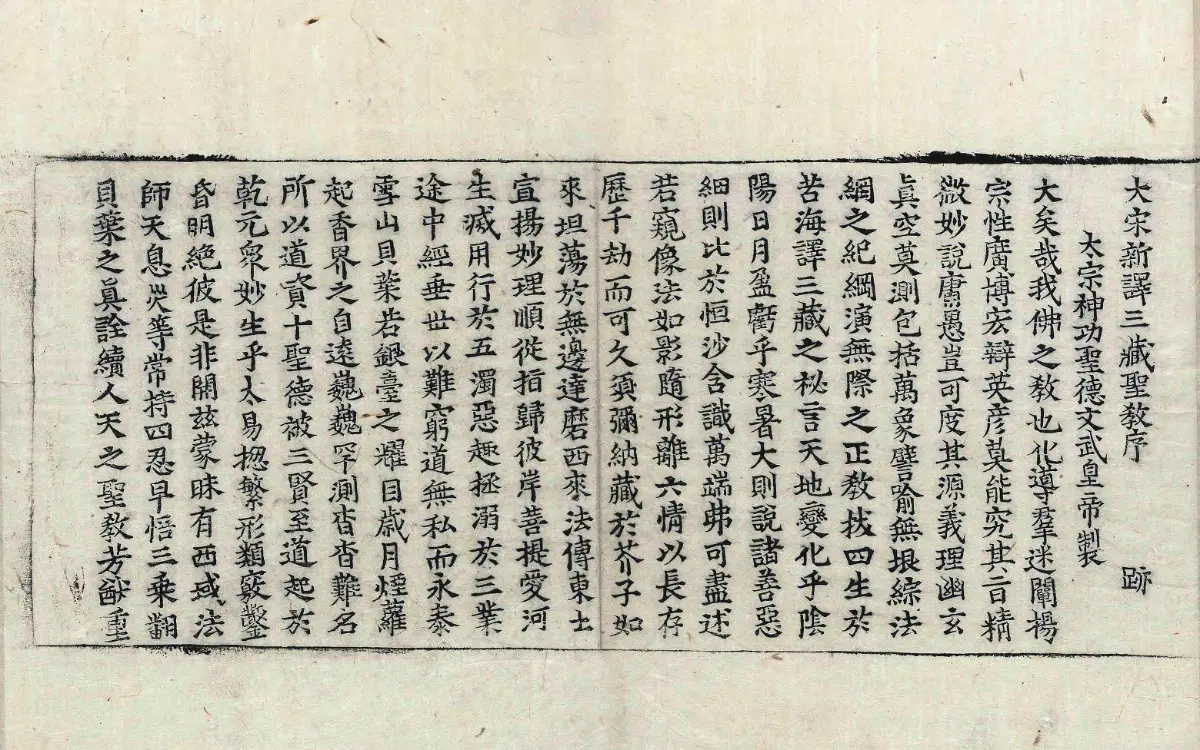 大宋新譯三藏聖教序 跡
太宗神功聖德文武皇帝製
大矣哉我佛之教也化導羣迷闡揚
宗性廣博宏辯英彥莫能究其旨精
微妙說庸愚豈可度其源義理幽玄
眞空莫測包括萬象譬喻無垠綜法
網之紀綱演無際之正教拔四生於
苦海譯三藏之秘言天地變化乎陰
陽日月盈虧乎寒暑大則說諸善惡
細則比於恒沙含識萬端弗可盡述
若窺像法如影隨形離六情以長存
歷千劫而可久須彌納藏於芥子如
來坦蕩於無邊達磨西來法傳東土
宣揚妙理順從指歸彼岸菩提愛河
生滅用行於五濁惡趣拯溺於三業
途中經垂世以難窮道無私而永泰
雪山貝葉若銀臺之耀目歲月煙蘿
起香界之自遠巍巍罕測杳杳難名
所以道資十聖德被三賢至道起於
乾元衆妙生乎太易揔繁形類竅鑿
昏明絕彼是非開茲蒙昧有西域法
師天息灾等常持四忍早悟三乘翻
貝葉之眞詮續人天之聖教芳猷重